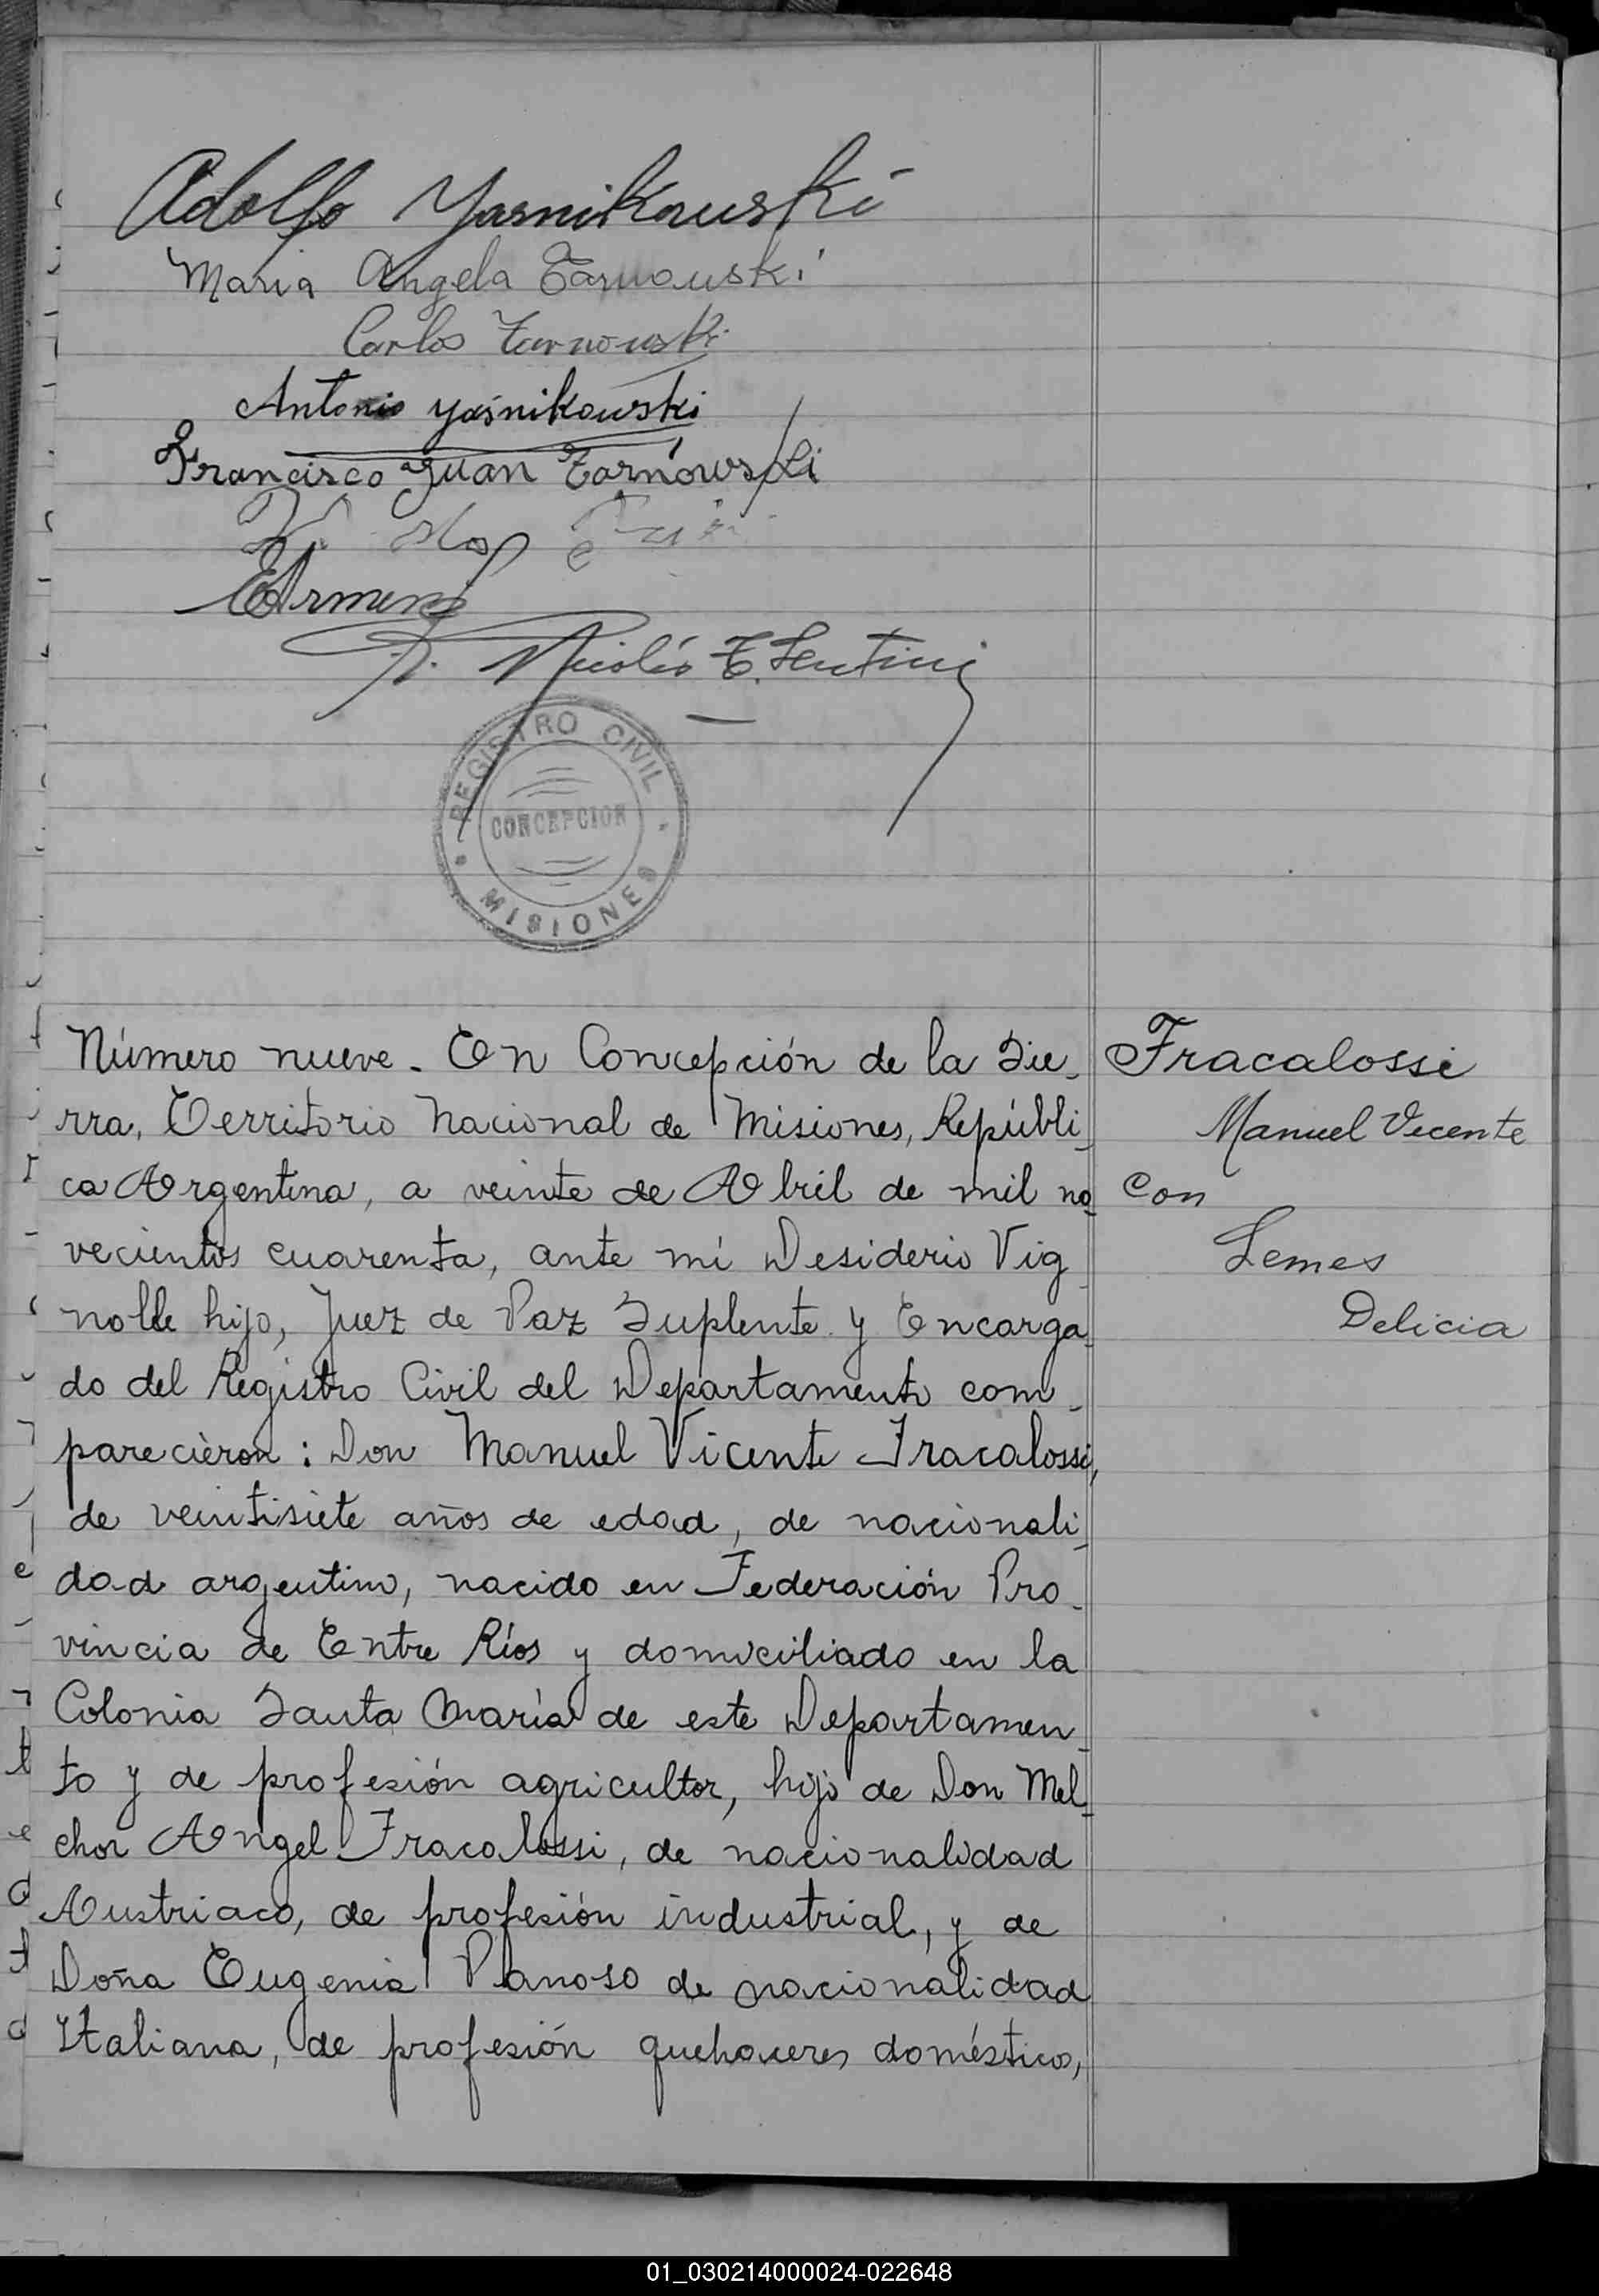 Adolfo Yasnikouski
Maria Angela Tarnouski
Carlos Tarnouski
Antonio yaśnikowski
Francisco Juan Tarnowski
P. Nicolás
REGISTRO CIVIL
CONCEPCION
MISIONES
Número nueve. En Concepción de la Sie-
rra, Territorio Nacional de Misiones, Repúbli-
ca Argentina, a veinte de Abril de mil no-
vecientos cuarenta, ante mí Desiderio Vig-
nolle hijo, Juez de Paz Suplente y Encarga-
do del Registro Civil del Departamento com-
parecieron: Don Manuel Vicente Fracalossi,
de veintisiete años de edad, de nacionali-
dad argentino, nacido en Federación Pro-
vincia de Entre Ríos y domiciliado en la
Colonia Santa María de este Departamen-
to y de profesión agricultor, hijo de Don Mel-
chor Angel Fracalossi, de nacionalidad
Austriaco, de profesión industrial, y de
Doña Eugenia Panoso de nacionalidad
Italiana, de profesión quehaceres domésticos,
Fracalossi
Manuel Vicente
con
Lemes
Delicia
01_030214000024-022648